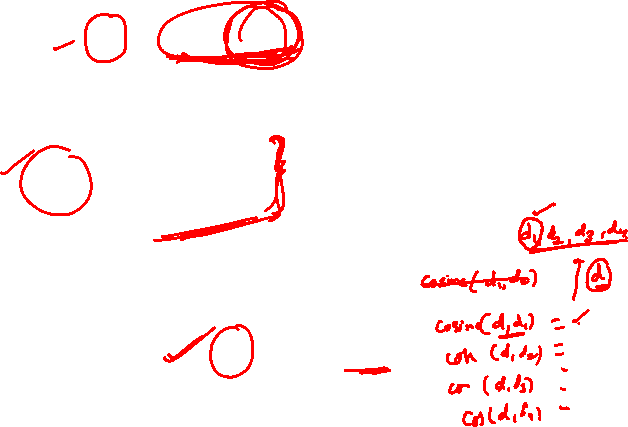 d1 d2, d3, d4
d
cosine(d1, d2)
cosine(d, d1) = ✓
cos (d, d2) =
cos (d, d3) =
cos(d, d4) =